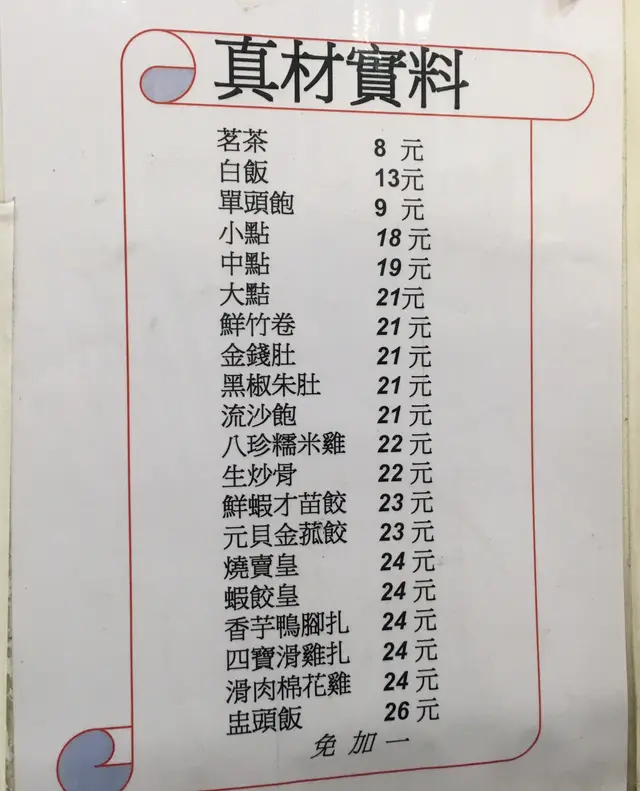 真材實料
茗茶 8 元
白飯 13元
單頭飽 9 元
小點 18 元
中點 19 元
大點 21元
鮮竹卷 21 元
金錢肚 21 元
黑椒朱肚 21 元
流沙飽 21 元
八珍糯米雞 22 元
生炒骨 22 元
鮮蝦才苗餃 23 元
元貝金菰餃 23 元
燒賣皇 24 元
蝦餃皇 24 元
香芋鴨腳扎 24 元
四寶滑雞扎 24 元
滑肉棉花雞 24 元
盅頭飯 26 元
免加一